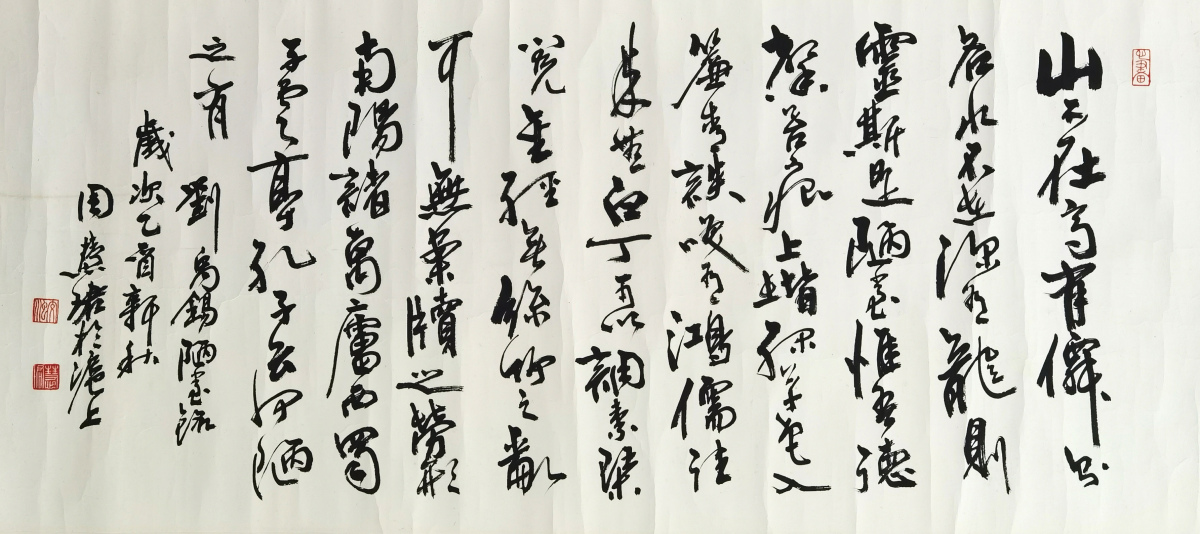 山不在高有僊則
名水不在深有龍則
靈斯是陋室惟吾德
馨苔痕上堦綠草色入
簾青談笑有鴻儒往
來無白丁可以調素琴
閱金經無絲竹之亂
耳無案牘之勞形
南陽諸葛廬西蜀
子雲亭孔子云何陋
之有
劉禹錫陋室銘
歲次乙酉新秋
周慧珺於滬上